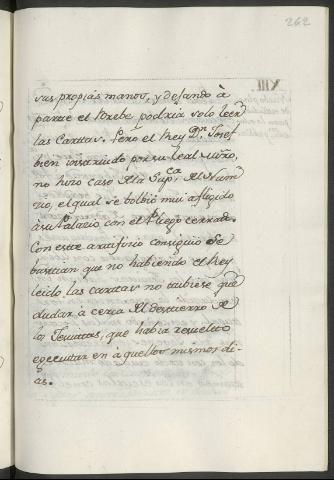 262
XIII.
sus propias manos, y dejando à
parte el Brebe podria solo leer
las Carttas. Pero el Rey Dn. Josef
bien instruido por su leal Niño,
no hizo caso de la Supca. del Nun
cio, el qual se bolbió mui afligido
à su Palacio con el Pliego cerrado.
Con este artificio consiguió Se
bastian que no habiendo el Rey
leido las carttas no tubiese que
dudar à cerca del destierro de
los Jesuitas, que habia resuelto
egecutar en aquellos mismos di-
as.